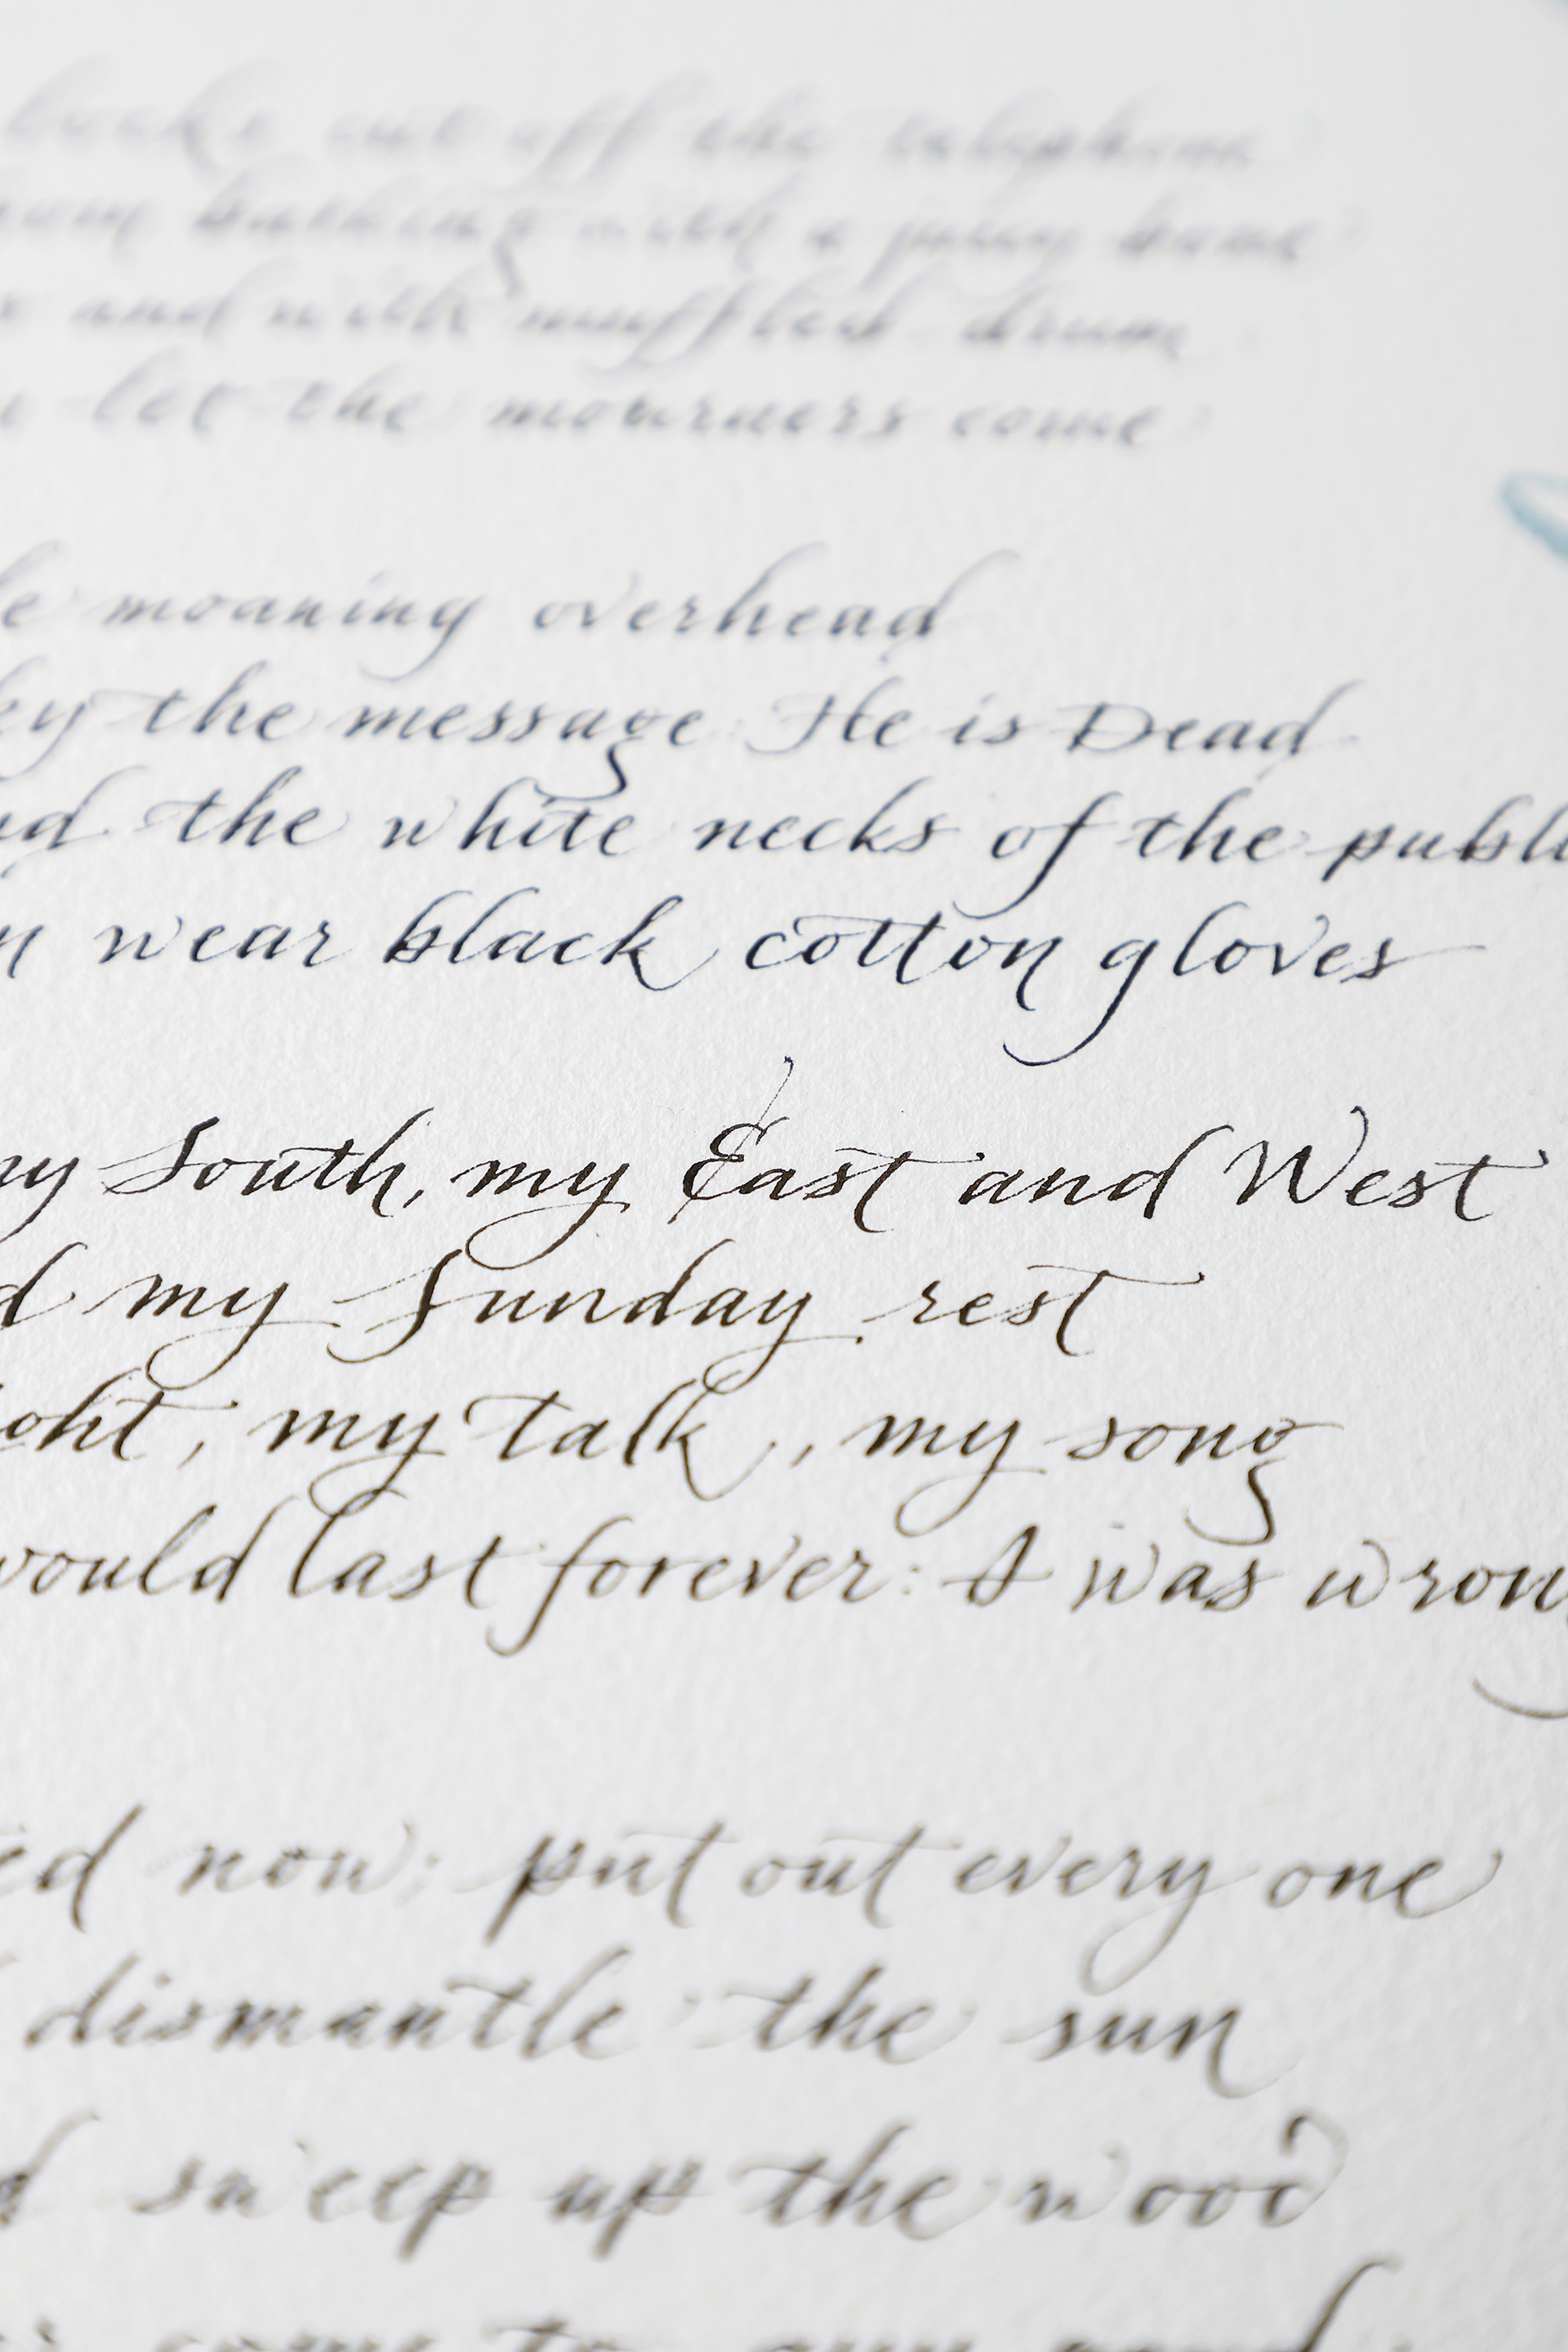 clocks cut off the telephone
from barking with a juicy bone
and with muffled drum
let the mourners come
le moaning overhead
ky the message He is Dead
nd the white necks of the publi
n wear black cotton gloves
my South, my East and West
d my Sunday rest
ght, my talk, my song
would last forever: I was wrong
ed now: put out every one
dismantle the sun
d sweep up the wood
come to any good